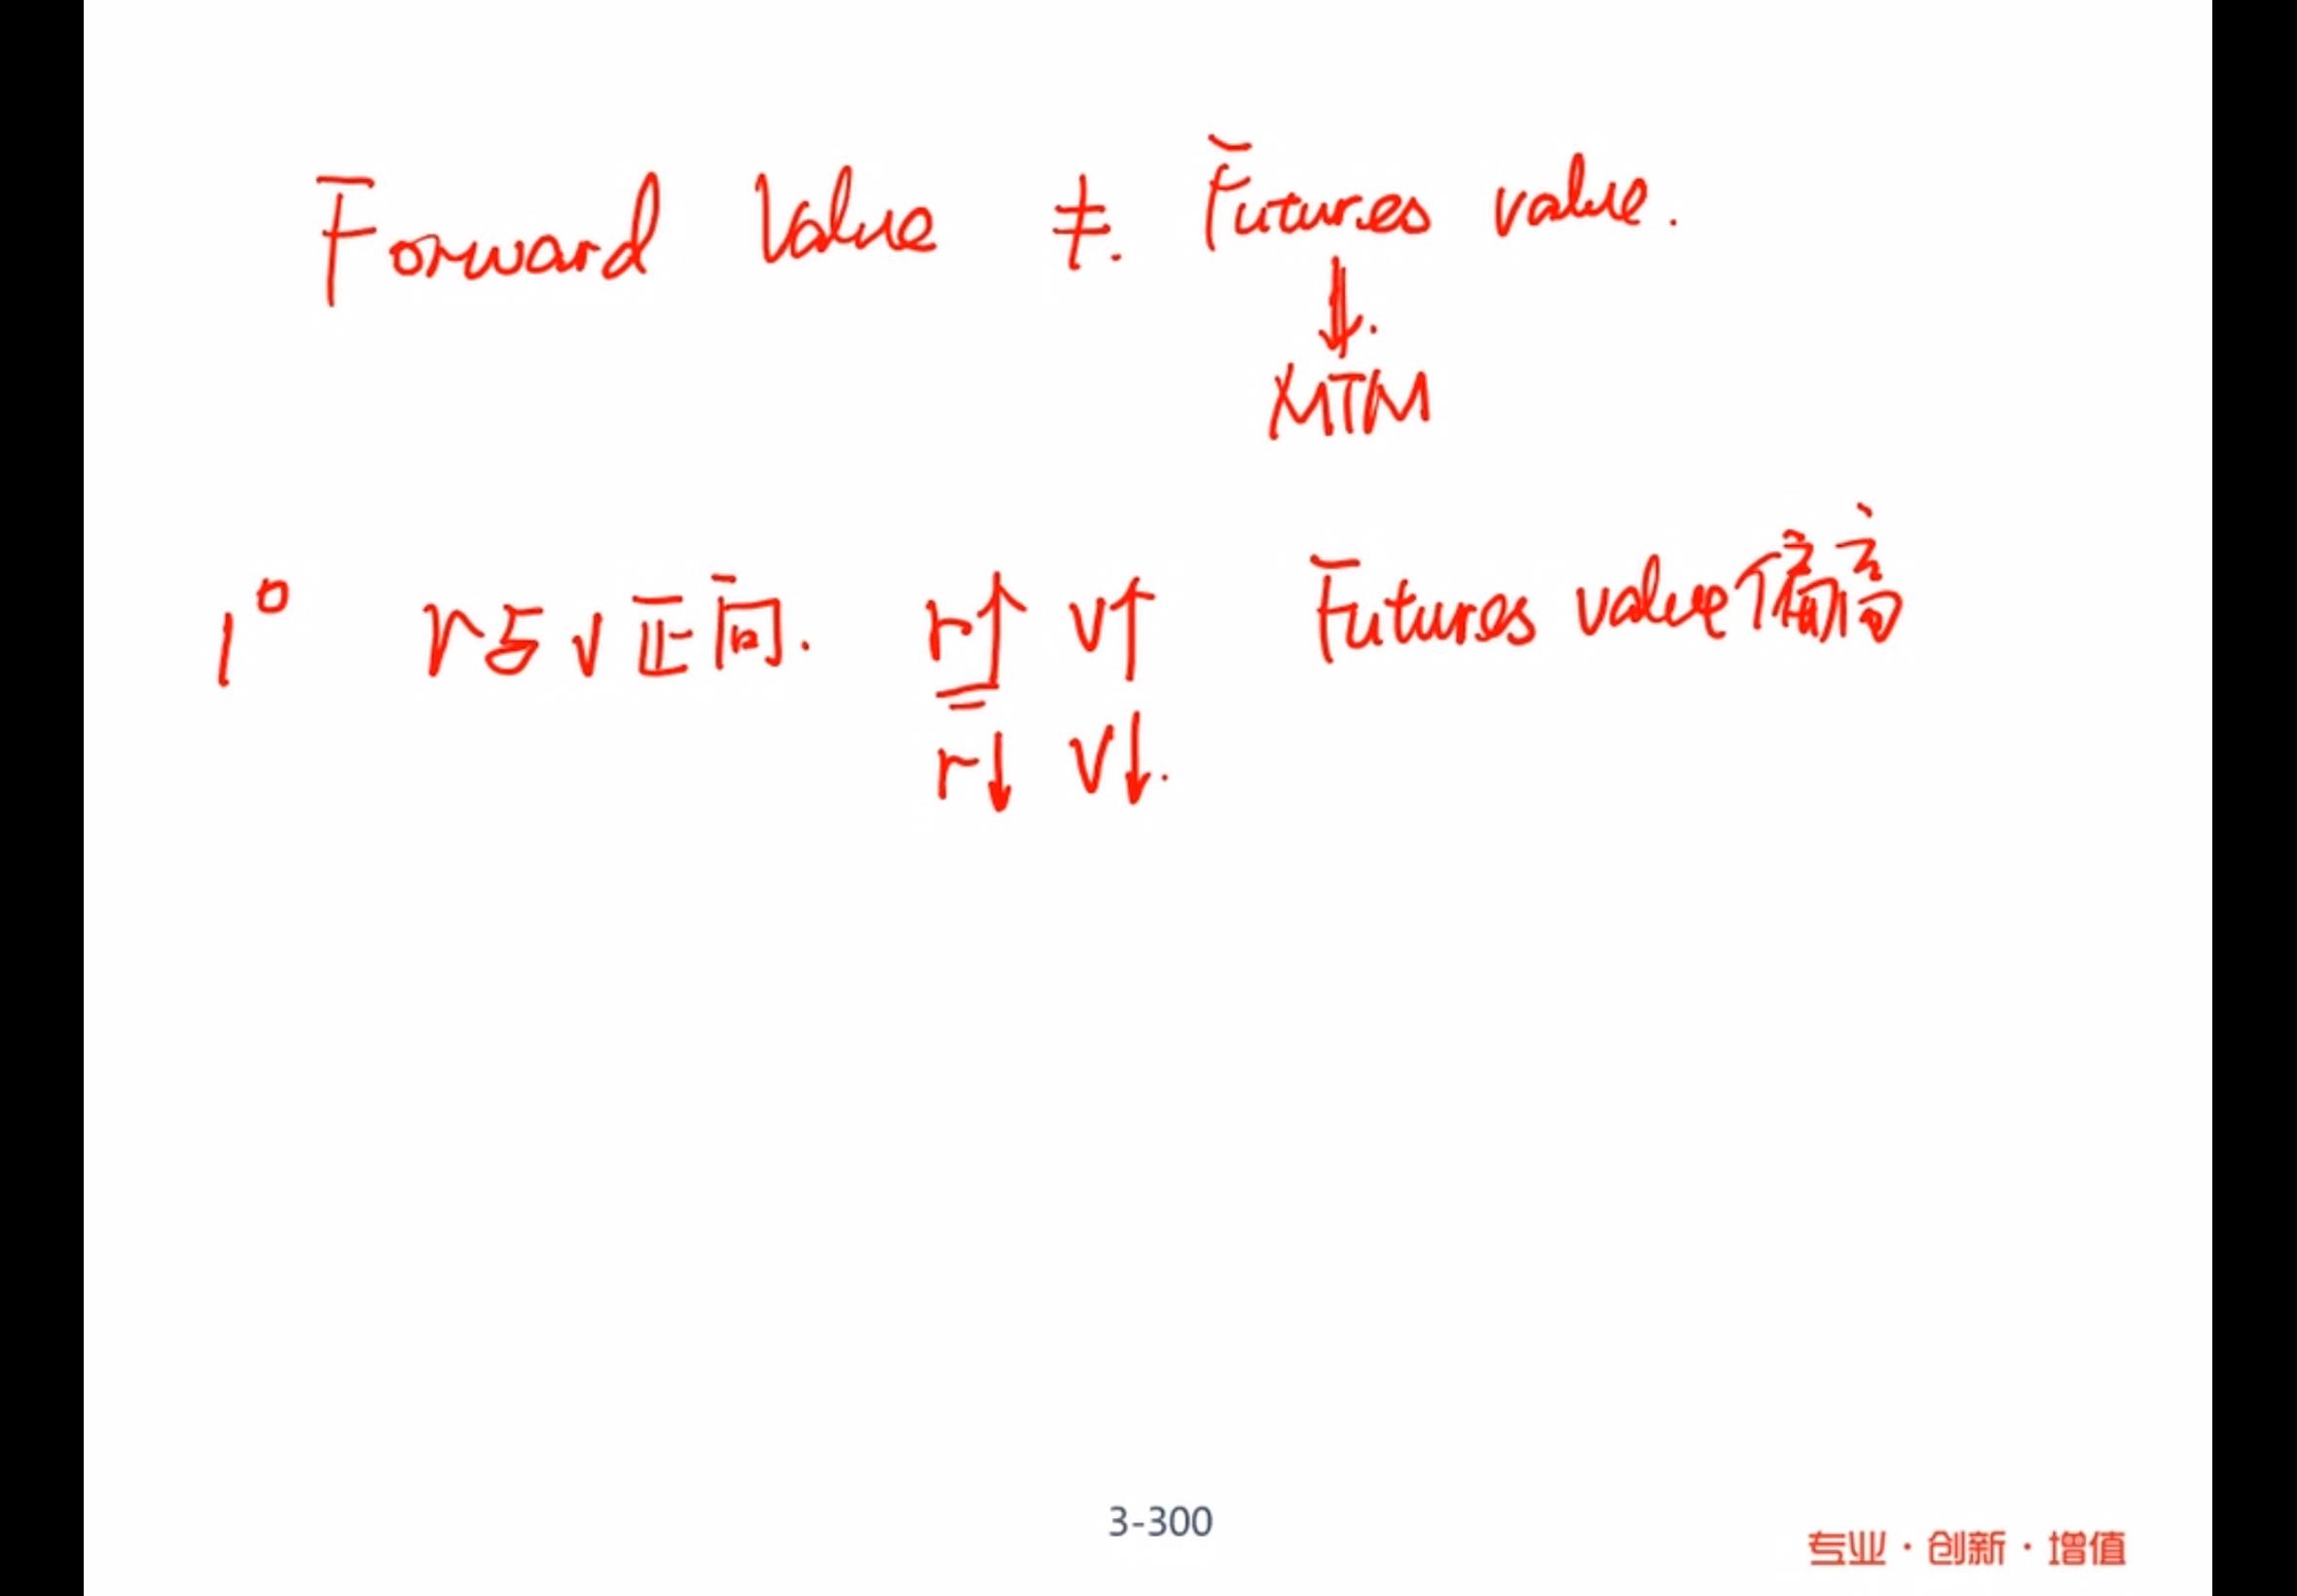 Forward Value ≠. Futures value.
↓.
MTM
1° r与v正向. r↑ v↑ Futures value偏高
r↓ v↓.
3-300
专业·创新·增值